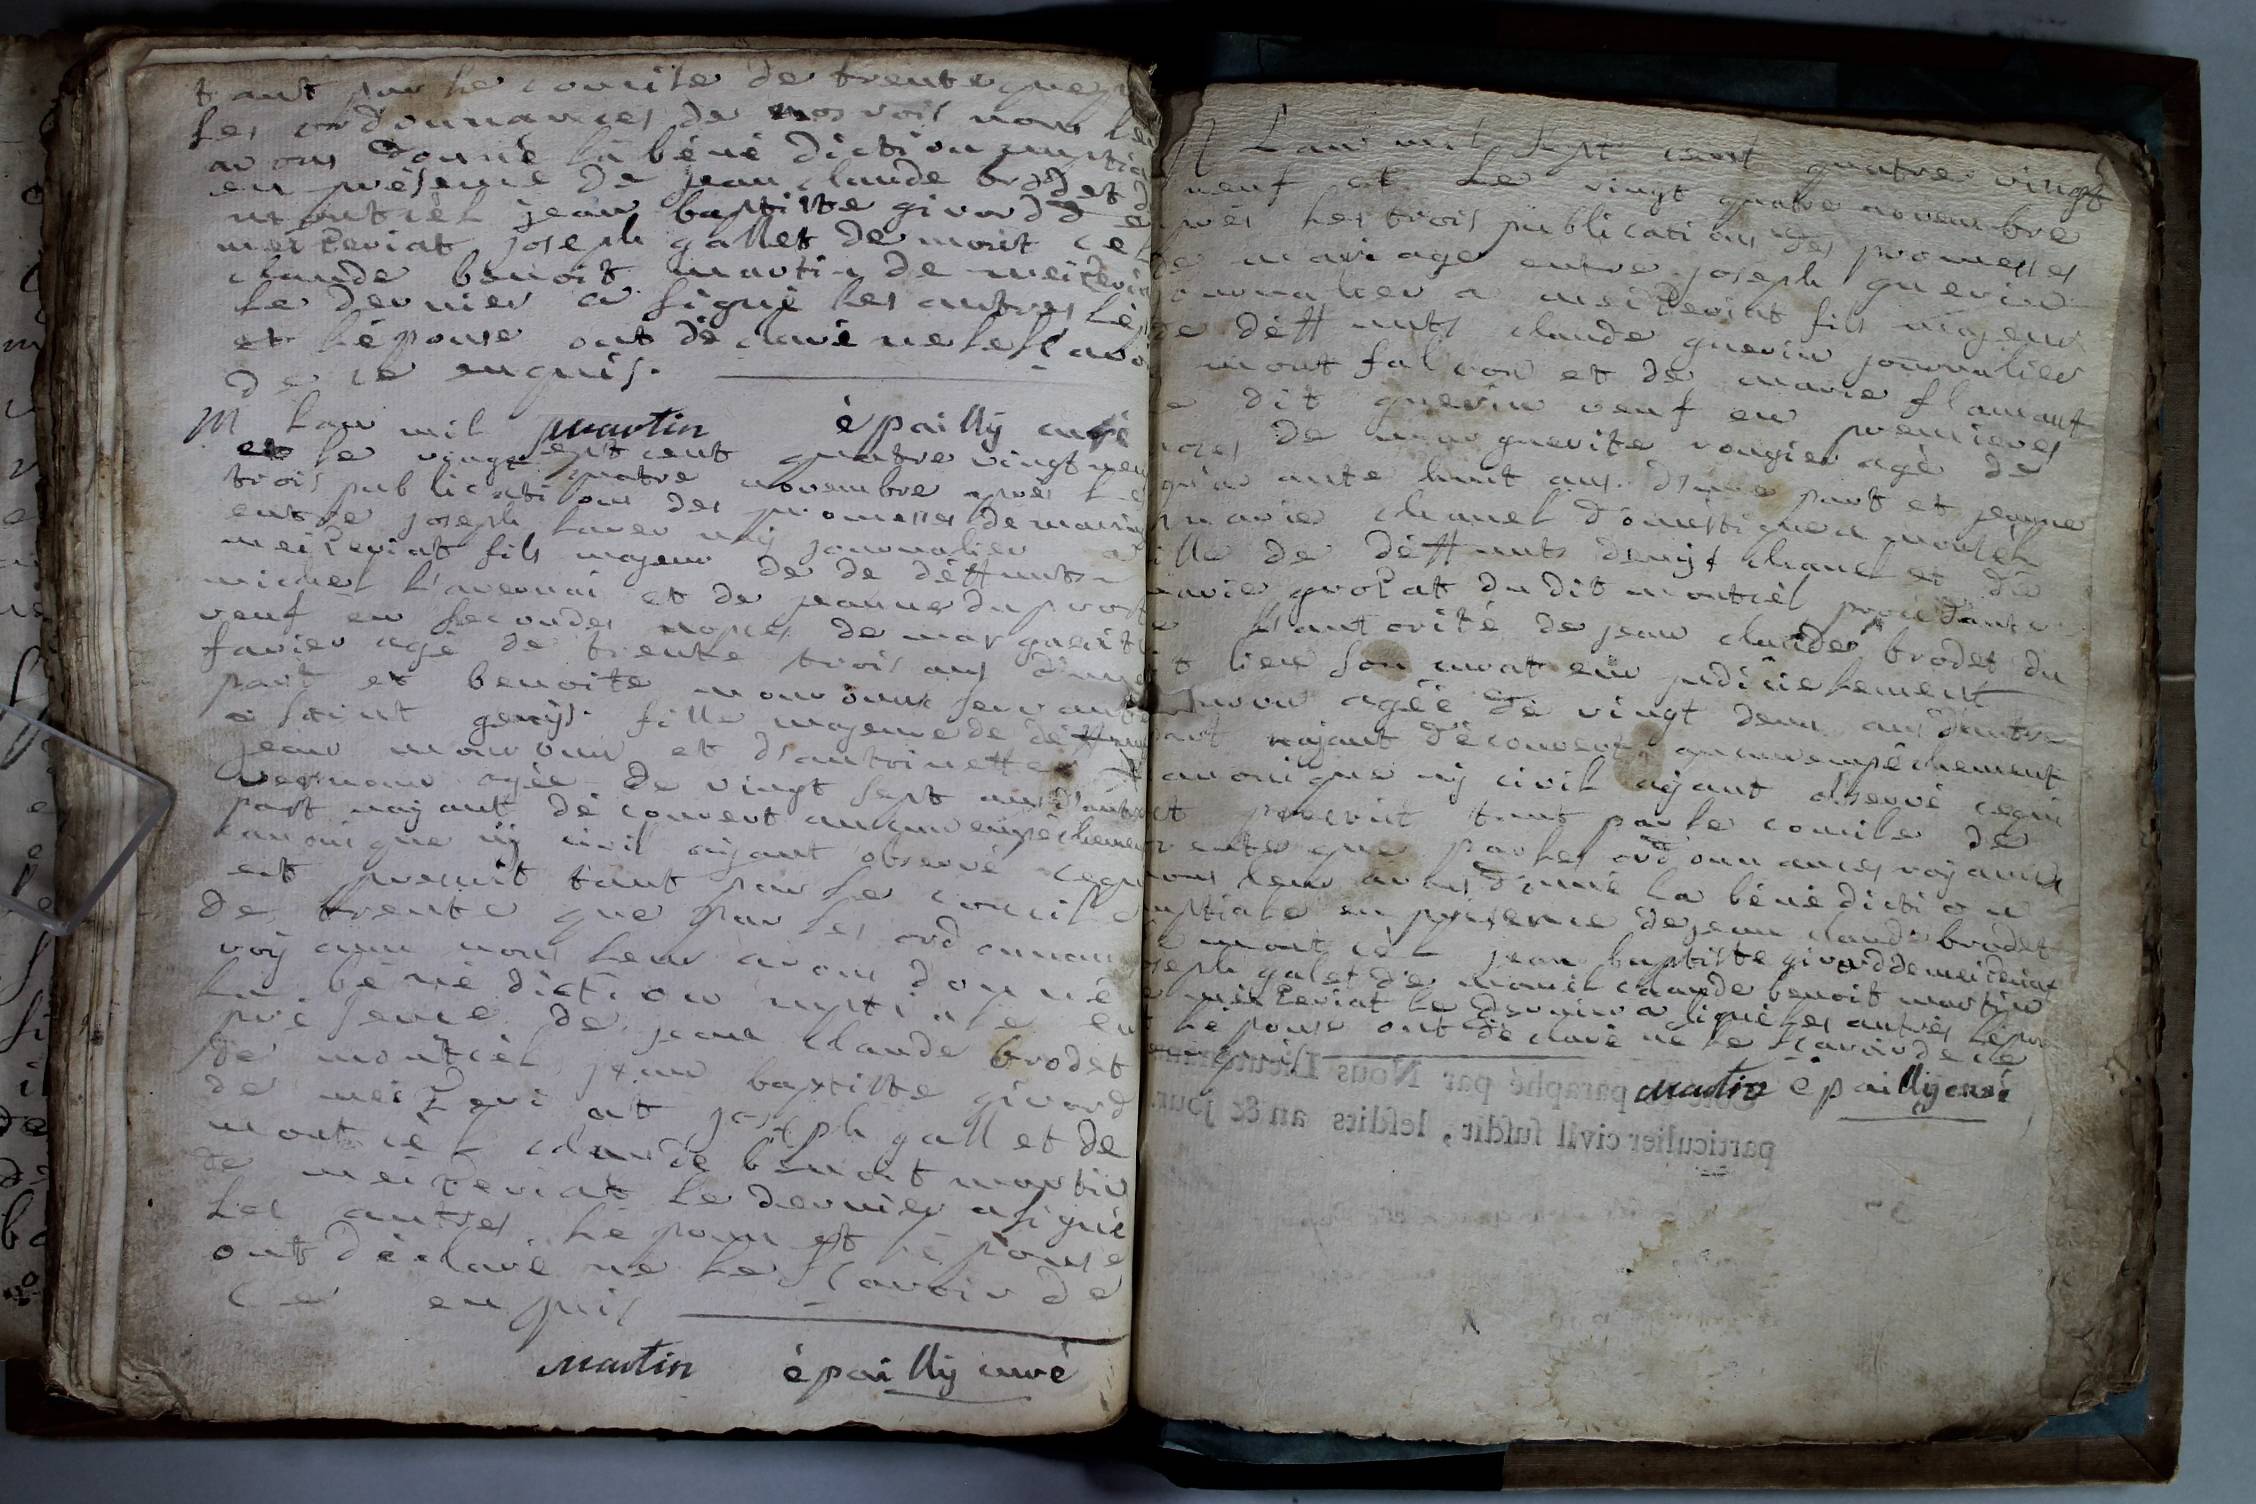 tant par le concile de trente que
les ordonnances de nos rois nous
avons donné la béné diction
en présence de jean claude brodet
montcel jean baptiste girard
meizeriat joseph gallet de mont ce
claude benoit martin de meizeria
le dernier a signé les autres
et lépouse ont déclaré ne le sca
de ce enquis.
martin épailly curé
M Lan mil sept cent quatre vingt neu
et le vingt quatre novembre apres le
trois publication des promesses de mariag
entre joseph journalier a
meizeriat fils majeur de de déffunts
michel et de jeanne duprost
veuf en secondes nopces de marguerit
favier agé de trente trois ans d'une
part et benoite servante
a saint genys. fille majeure de deffun
jean et d'antoinette
agée de vingt sept ans d'autre
part nayant décovert aucun empêchemen
canonique nÿ civil ayant observé cequ
est prescrit tant par le concile
de trente que par les ordonnan
roÿ aux nous leur avons donné
la béné diction nuptiale en
présence de jean claude brodet
de montcel jean baptiste girard
de meizeri at joseph gallet de
mont cel claude benoit martin
de meizeriat le dernier a signé
les autres lépoux et lépouse
ont déclaré ne le scavoir de
ce enquis
martin épailly curé
Lan mil sept cent quatre vingt
neuf et le vingt quatre novembre
près les trois publications des promesses
de mariage entre joseph guerin
ournalier a meizeriat fils majeur
de déffunts claude guerin journalier
mont falcon et de marie flamant
dit guerin veuf en premieres
de marguerite rongier agé de
qu'ar ante huit ans. d'une part et jeanne
marie chanel domestique a montcel
ille de déffunts denys chanel et de
marie grozat du dit montcel procedante
l'autorité de jean claude brodet du
it lieu son curateur judicielement
agée de vingt deux ans d'autre
part nayant découvert aucun empêchement
canonique nÿ civil aÿant observé cequi
est prescrit tant par le concile de
rente que par les ordonnances royaux
nous leur avons donné la bénédiction
uptiale en présence de jean claude brodet
mont cel jean baptiste girard de meizeriat
oseph galet de montcel claude benoit martin
meizeriat le dernier a signé les autres lépou
lépouse ont déclaré ne le scavoir de ce
martin épailly curé
paraphé par Nous Lieutenant
particulier civil susdit, lesdits an & jour.